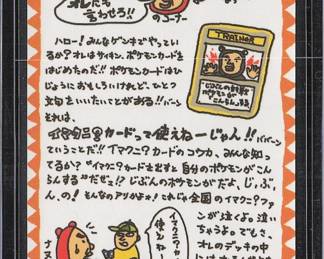 オレにも
言わせろ!!
のコーナー
TRAINER
ハロー! みんなゲンキでやってい
るか? オレはサイキン、ポモンカードを
はじめたのだ!! ポケモンカードはひ
じょうにおもしろいけれど、ひとつ
文句をいいたいことがある!! ババーン
それは、
イマクニ?カードって使えねーじゃん!! ババババーン
ていうことだ!! イマクニ?カードのコウカ、みんな知っ
てるか? "イマクニ?カードを出すと自分のポケモンがこん
らんする"だぜ!? じぶんのポケモンがだよ、じ、ぶ、
ん、の! そんなのアリかヨォ! これじゃ全国のイマクニ?ファ
ンが泣くよ。泣い
ちゃうよ。でもさ、
オレのデッキの中
イマクニ?カード
使えねー